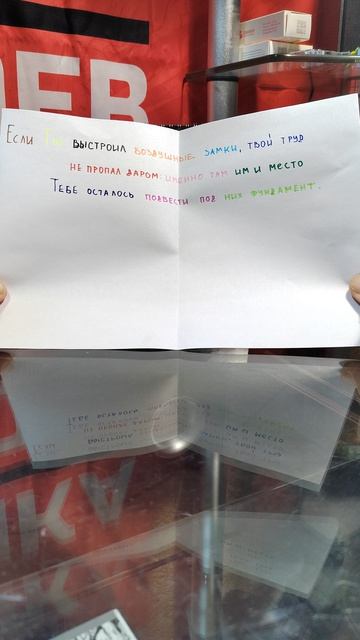 ЕВ
Если Ты выстроил воздушные замки, твой труд
не пропал даром: именно там им и место
Тебе осталось подвести под них фундамент.